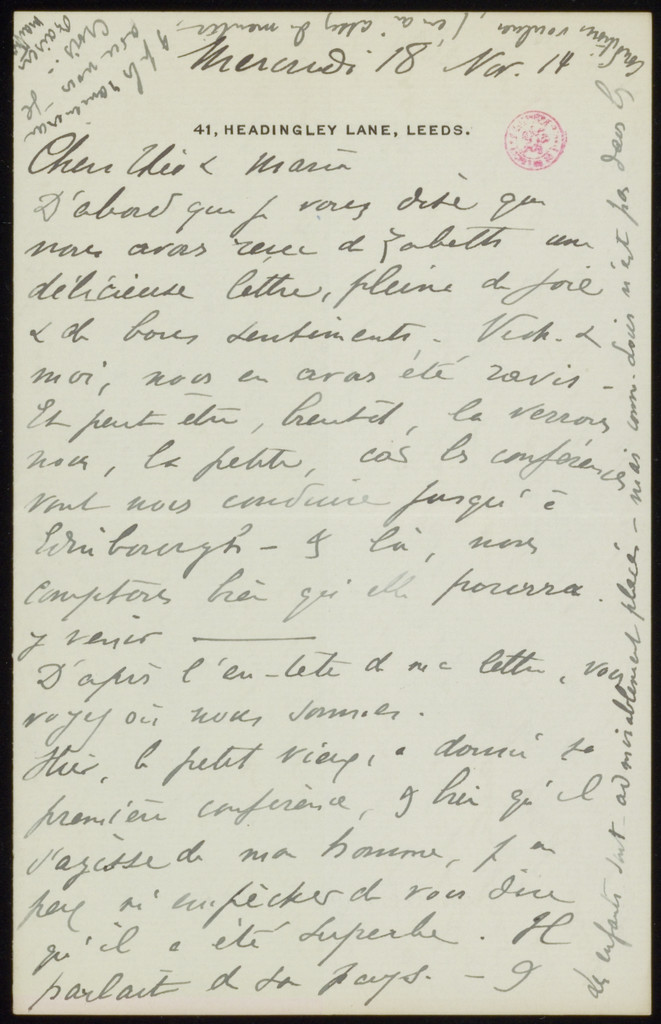 Mercredi 18 Nov. 14
41, HEADINGLEY LANE, LEEDS.
Chers Théo & Maria
D'abord que je vous dise que
nous avons reçu de Zabeth une
délicieuse lettre, pleine de joie
& de bons sentiments. Vick. &
moi, nous en avons été ravis -
Et peut être, bientôt, la verrons
nous, la petite, car les conférences
vont nous conduire jusqu'à
Edinborough - & là, nous
comptons bien qu'elle pourra
y venir
D'après l'en-tête de ma lettre, vous
voyez où nous sommes.
Hier, le petit vieux, a donné sa
première conférence, & bien qu'il
s'agisse de mon homme, je ne
peux m'empêcher de vous dire
qu'il a été superbe. Il
parlait de son pays. - &
les enfants sont admirablement placés - mais comm. Louis n'est pas dans les
conditions voulues, il en a assez de